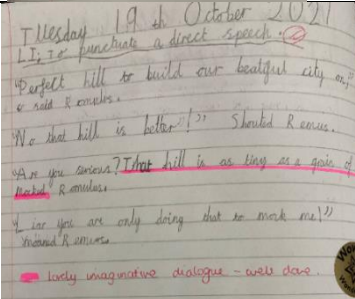 Tuesday 19th October 2021
LI: To punctuate a direct speech.
"Perfect hill to build our beatiful city on,"
said Romulus.
"No that hill is better!" Shouted Remus.
"Are you serious? That hill is as tiny as a grain of
Mocked Romulus.
you are only doing that to mock me!"
moaned Remus.
lovely imaginative dialogue - well done.